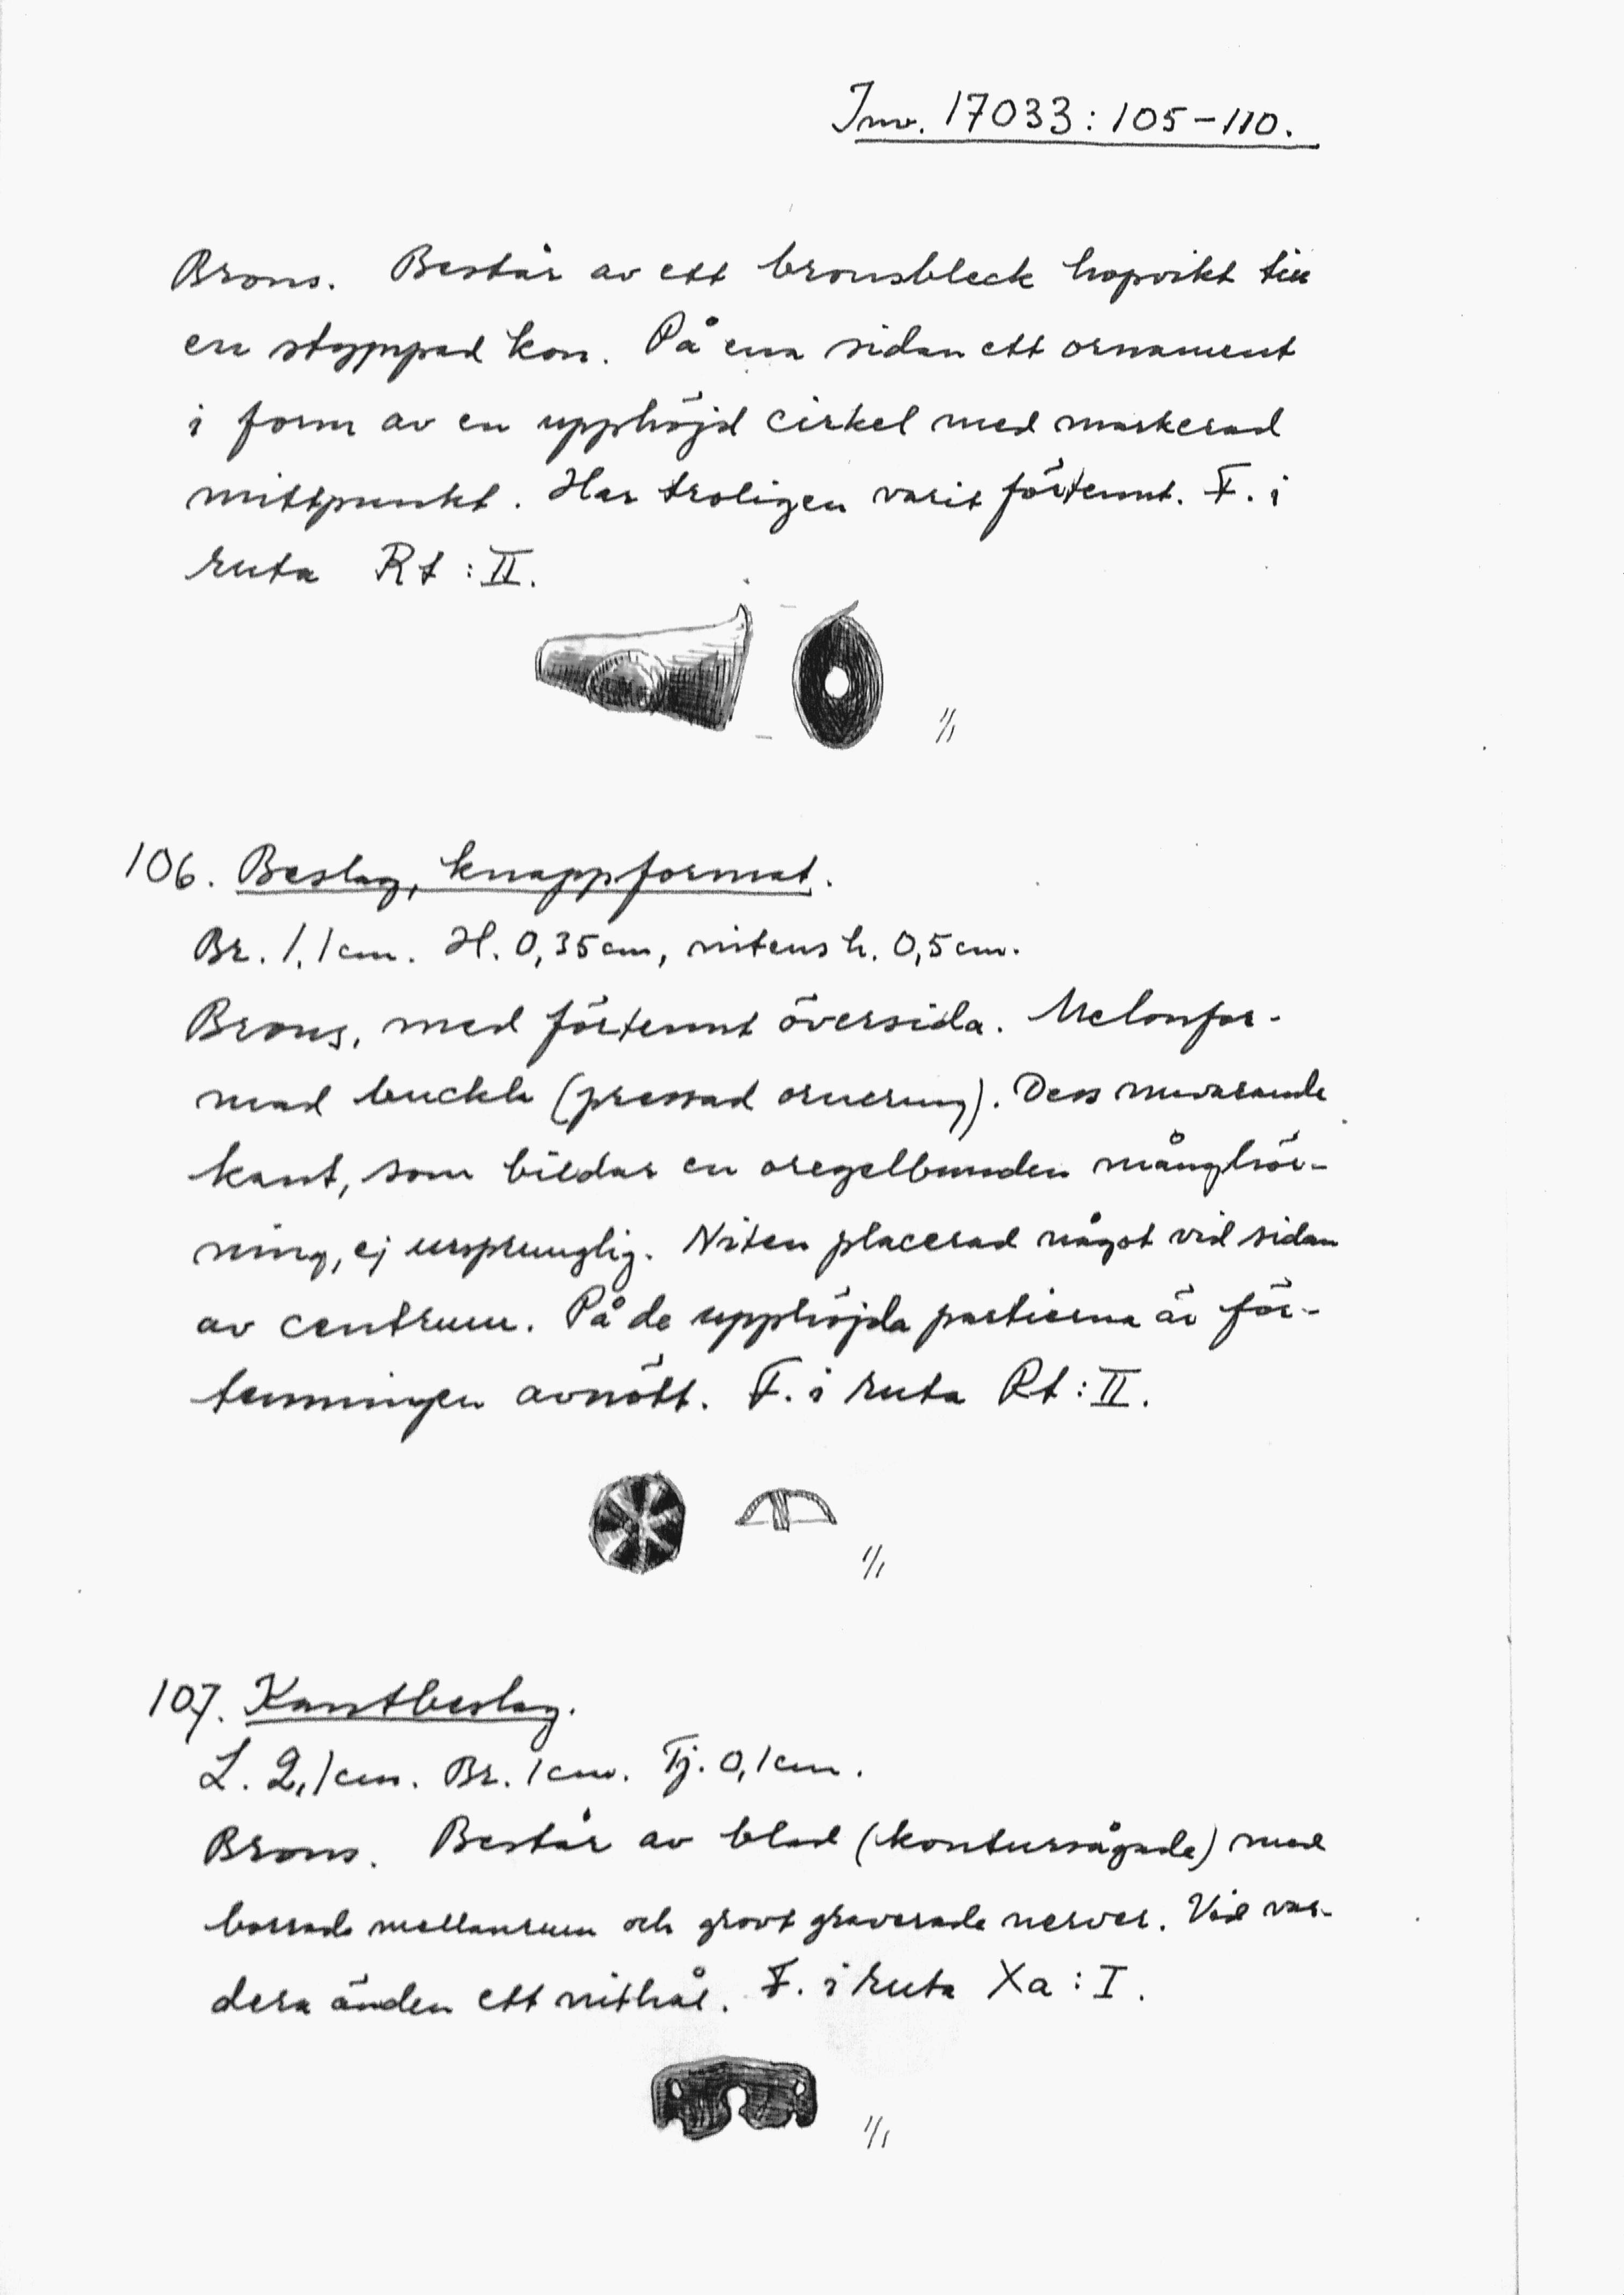 Inv. 17033:105-110.
Brons. Består av ett bronsbleck hopvikt till
en stympad kon. På ena sidan ett ornament
i form av en upphöjd cirkel med markerad
mittpunkt. Har troligen varit förtennt. F. i
ruta Rt:II.
1/1
106. Beslag, knappformat.
Br. 1,1cm. H. 0,35cm, nitens h. 0,5cm.
Brons, med förtennt översida. Melonfor-
mad buckla (pressad ornering). Dess nuvarande
kant, som bildar en oregelbunden månghör-
ning, ej ursprunglig. Niten placerad något vid sidan
av centrum. På de upphöjda partierna är för-
tenningen avnött. F. i ruta Rt:II.
1/1
107. Kantbeslag.
L. 2,1cm. Br. 1cm. Tj. 0,1cm.
Brons. Består av blad (kontursågade) med
borrade mellanrum och grovt graverade nerver. Vid var-
dera änden ett nithål. F. i ruta Xa:I.
1/1